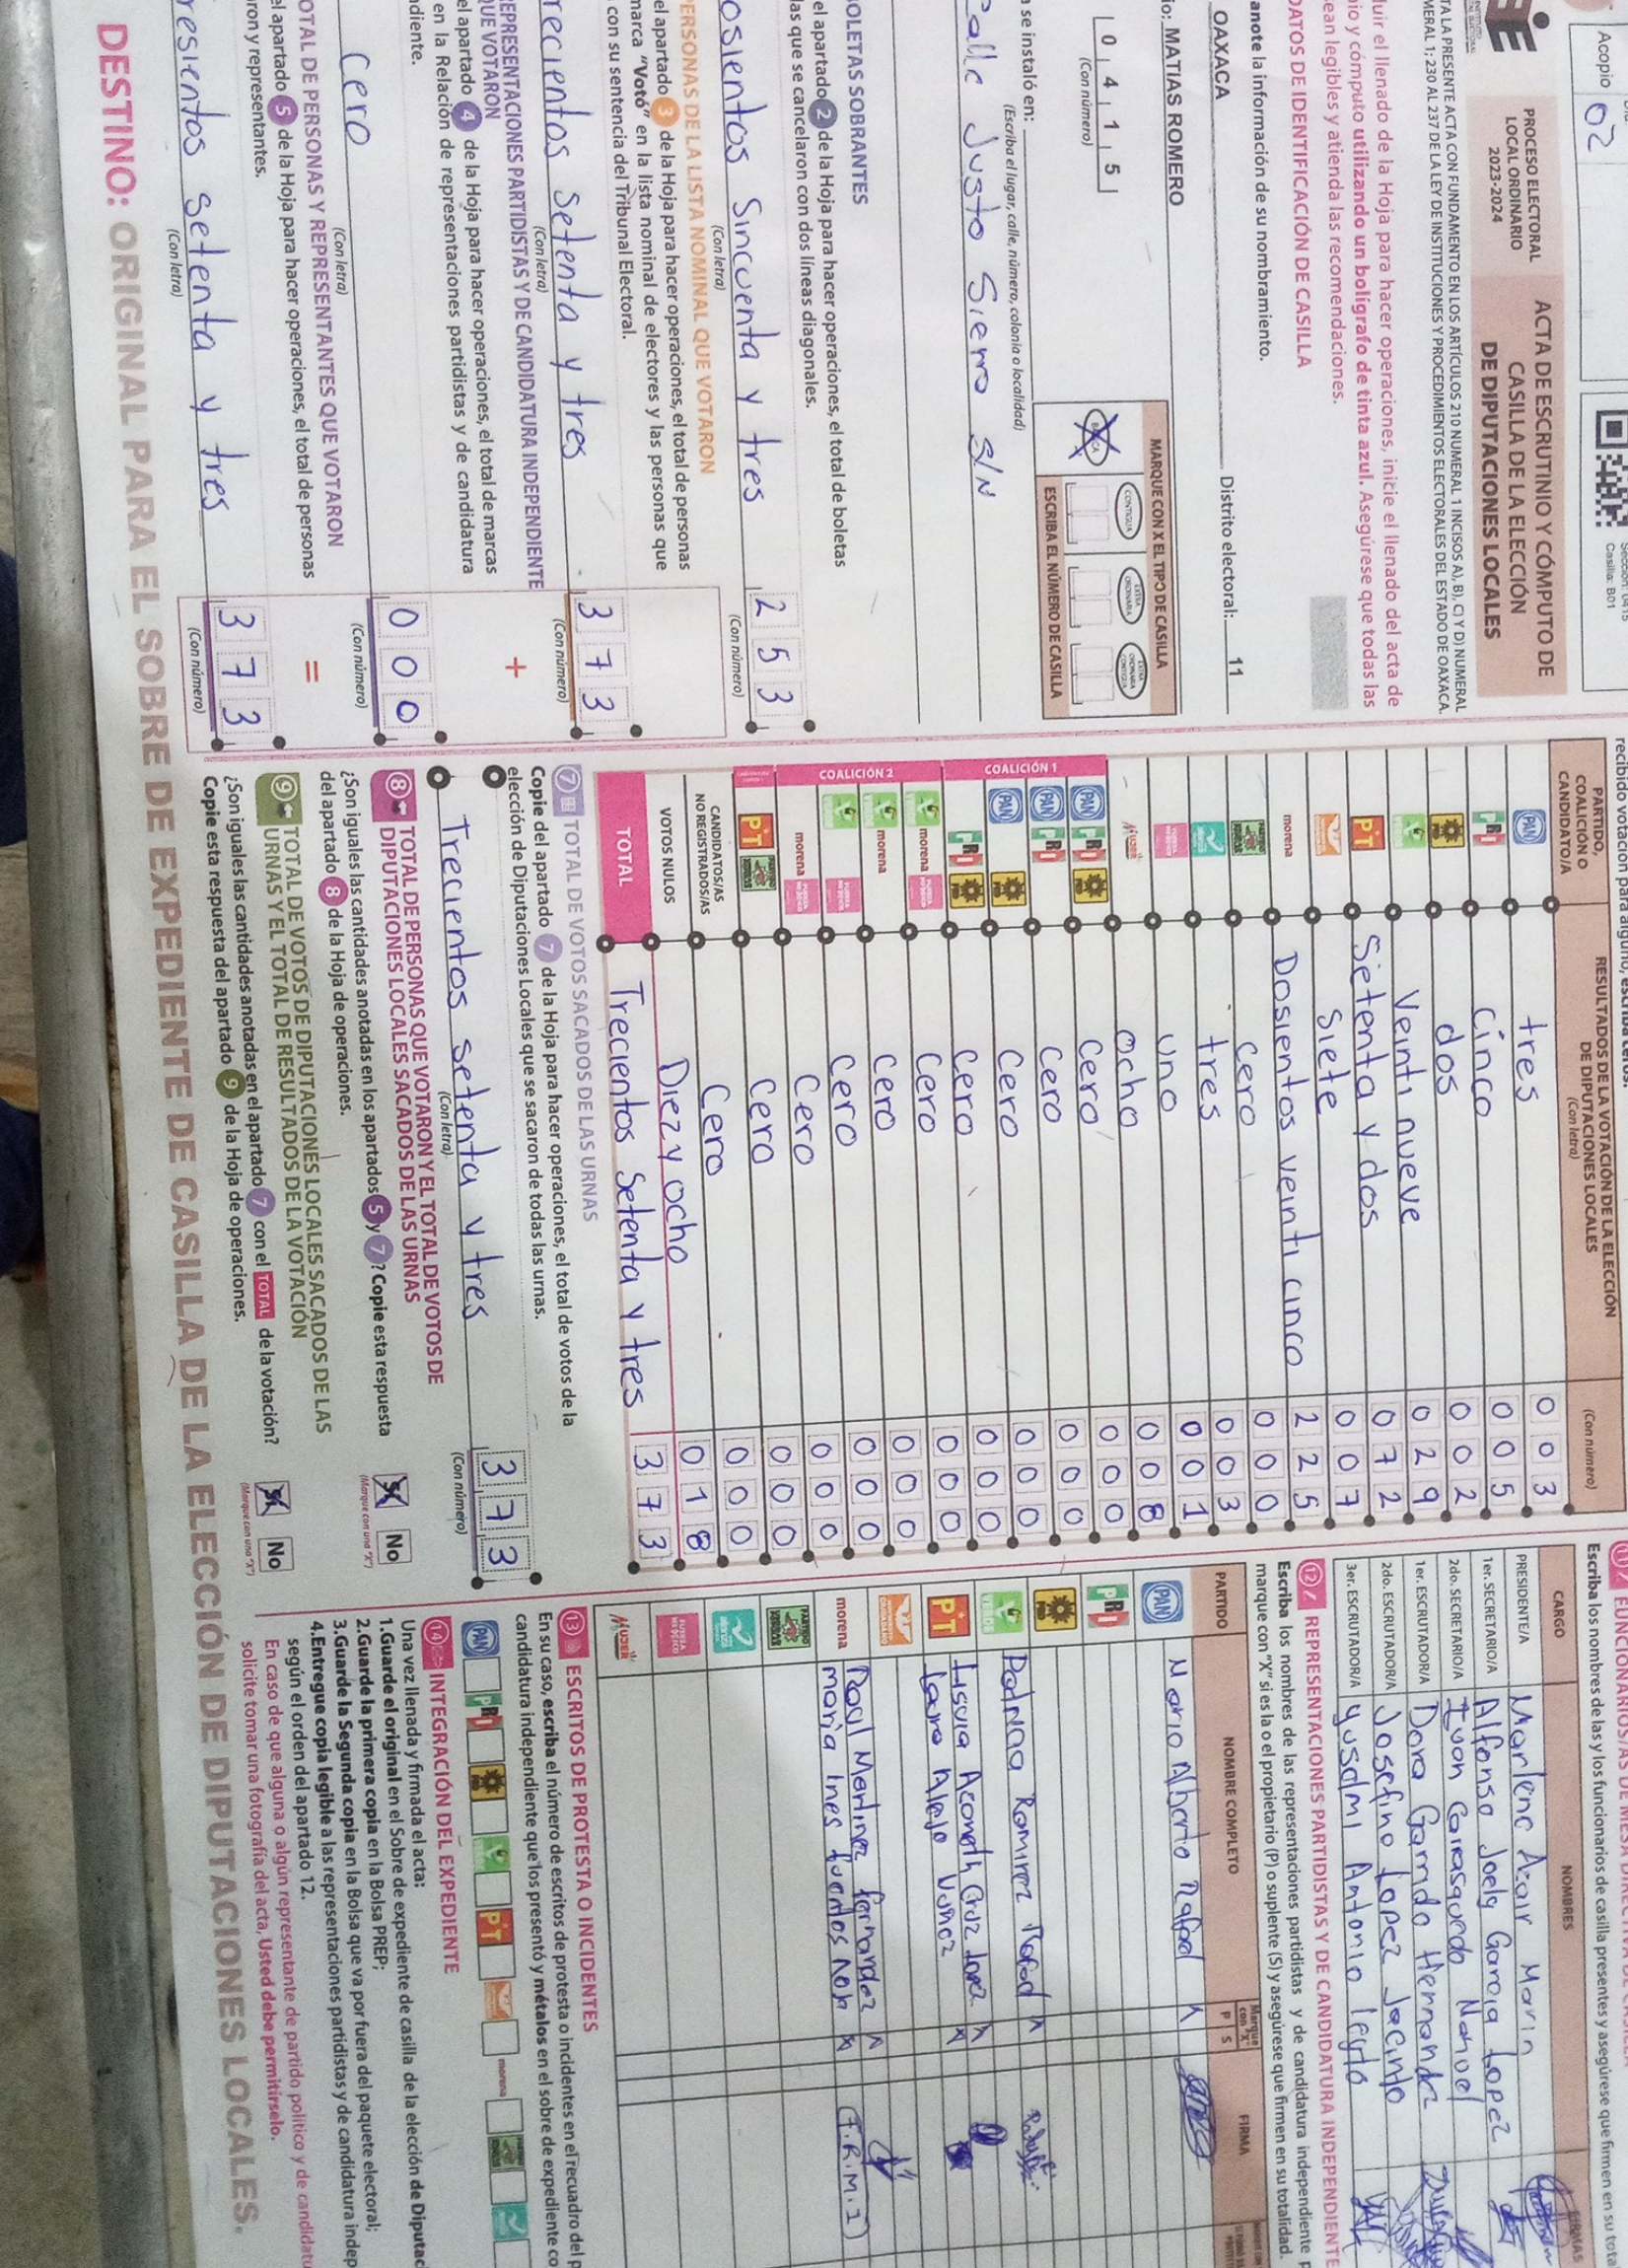 Acopio 02
Sección: 0415
Casilla: B01
PROCESO ELECTORAL
LOCAL ORDINARIO
2023-2024
ACTA DE ESCRUTINIO Y CÓMPUTO DE
CASILLA DE LA ELECCIÓN
DE DIPUTACIONES LOCALES
TA LA PRESENTE ACTA CON FUNDAMENTO EN LOS ARTÍCULOS 210 NUMERAL 1 INCISOS A), B), C) Y D) NUMERAL
MERAL 1; 230 AL 237 DE LA LEY DE INSTITUCIONES Y PROCEDIMIENTOS ELECTORALES DEL ESTADO DE OAXACA.
luir el llenado de la Hoja para hacer operaciones, inicie el llenado del acta de
io y cómputo utilizando un bolígrafo de tinta azul. Asegúrese que todas las
ean legibles y atienda las recomendaciones.
DATOS DE IDENTIFICACIÓN DE CASILLA
anote la información de su nombramiento.
OAXACA Distrito electoral: 11
io: MATIAS ROMERO
0 4 1 5
(Con número)
MARQUE CON X EL TIPO DE CASILLA
CONTIGUA
ESCRIBA EL NÚMERO DE CASILLA
a se instaló en:
(Escriba el lugar, calle, número, colonia o localidad)
Calle Justo Sierra S/N
OLETAS SOBRANTES
el apartado 2 de la Hoja para hacer operaciones, el total de boletas
las que se cancelaron con dos líneas diagonales.
osientos Sincuenta y tres 2 5 3
(Con letra) (Con número)
PERSONAS DE LA LISTA NOMINAL QUE VOTARON
el apartado 3 de la Hoja para hacer operaciones, el total de personas
marca "Votó" en la lista nominal de electores y las personas que
con su sentencia del Tribunal Electoral.
recientos setenta y tres 3 7 3
(Con letra) (Con número)
+
EPRESENTACIONES PARTIDISTAS Y DE CANDIDATURA INDEPENDIENTE
QUE VOTARON
el apartado 4 de la Hoja para hacer operaciones, el total de marcas
en la Relación de representaciones partidistas y de candidatura
diente.
Cero 0 0 0
(Con letra) (Con número)
=
OTAL DE PERSONAS Y REPRESENTANTES QUE VOTARON
el apartado 5 de la Hoja para hacer operaciones, el total de personas
ron y representantes.
resientos setenta y tres 3 7 3
(Con letra) (Con número)
recibido votación para alguno, escriba ceros.
PARTIDO,
COALICIÓN O
CANDIDATO/A
RESULTADOS DE LA VOTACIÓN DE LA ELECCIÓN
DE DIPUTACIONES LOCALES
(Con letra)
(Con número)
PAN tres 0 0 3
PRI Cinco 0 0 5
PRD dos 0 0 2
VERDE Veinti nueve 0 2 9
PT Setenta y dos 0 7 2
Siete 0 0 7
morena Dosientos veinti cinco 2 2 5
Cero 0 0 0
tres 0 0 3
uno 0 0 1
MUJER Ocho 0 0 8
COALICIÓN 1
PAN PRI PRD Cero 0 0 0
PAN PRI Cero 0 0 0
PAN PRD Cero 0 0 0
PRI PRD Cero 0 0 0
COALICIÓN 2
morena Cero 0 0 0
morena Cero 0 0 0
Cero 0 0 0
morena Cero 0 0 0
PT Cero 0 0 0
CANDIDATOS/AS
NO REGISTRADOS/AS
Cero 0 0 0
VOTOS NULOS Diez y ocho 0 1 8
TOTAL Trecientos Setenta y tres 3 7 3
7 TOTAL DE VOTOS SACADOS DE LAS URNAS
Copie del apartado 7 de la Hoja para hacer operaciones, el total de votos de la
elección de Diputaciones Locales que se sacaron de todas las urnas.
Trecientos setenta y tres 3 7 3
(Con letra) (Con número)
8 TOTAL DE PERSONAS QUE VOTARON Y EL TOTAL DE VOTOS DE
DIPUTACIONES LOCALES SACADOS DE LAS URNAS
¿Son iguales las cantidades anotadas en los apartados 5 y 7? Copie esta respuesta
del apartado 8 de la Hoja de operaciones.
Sí No
(Marque con una "X")
9 TOTAL DE VOTOS DE DIPUTACIONES LOCALES SACADOS DE LAS
URNAS Y EL TOTAL DE RESULTADOS DE LA VOTACIÓN
¿Son iguales las cantidades anotadas en el apartado 7 con el TOTAL de la votación?
Copie esta respuesta del apartado 9 de la Hoja de operaciones.
Sí No
(Marque con una "X")
Escriba los nombres de las y los funcionarios de casilla presentes y asegúrese que firmen en su tota
CARGO NOMBRES
PRESIDENTE/A Marlene Acar Marin
1er. SECRETARIO/A Alfonso Joely Garcia Lopez
2do. SECRETARIO/A Ivan Carasquedo Nahuel
1er. ESCRUTADOR/A Dora Garrido Hernandez
2do. ESCRUTADOR/A Josefina Lopez Jacinto
3er. ESCRUTADOR/A Yuselmi Antonio
12 REPRESENTACIONES PARTIDISTAS Y DE CANDIDATURA INDEPENDIENTE
Escriba los nombres de las representaciones partidistas y de candidatura independiente
marque con "X" si es la o el propietario (P) o suplente (S) y asegúrese que firmen en su totalidad.
PARTIDO NOMBRE COMPLETO Marque con "X" P S FIRMA
PAN Mario Alberto Rafael X
PRI
PRD Ramirez Rafael X
VERDE Aconeth Cruz Lopez X
PT Laura Alejo X
morena Raul Martinez fernandez X
Maria Ines fuentes X
MUJER
13 ESCRITOS DE PROTESTA O INCIDENTES
En su caso, escriba el número de escritos de protesta o incidentes en el recuadro del p
candidatura independiente que los presentó y métalos en el sobre de expediente co
PAN PRI PRD PT morena
14 INTEGRACIÓN DEL EXPEDIENTE
Una vez llenada y firmada el acta:
1.Guarde el original en el Sobre de expediente de casilla de la elección de Diputac
2.Guarde la primera copia en la Bolsa PREP;
3.Guarde la Segunda copia en la Bolsa que va por fuera del paquete electoral;
4.Entregue copia legible a las representaciones partidistas y de candidatura indep
según el orden del apartado 12.
En caso de que alguna o algún representante de partido político y de candidatu
solicite tomar una fotografía del acta, Usted debe permitírselo.
DESTINO: ORIGINAL PARA EL SOBRE DE EXPEDIENTE DE CASILLA DE LA ELECCIÓN DE DIPUTACIONES LOCALES.